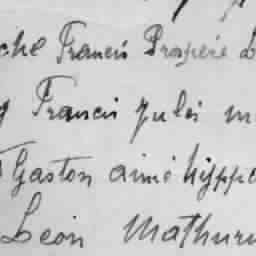 che Francis Prospère
Francis jules
Gaston aimé hyppo
Léon Mathurin